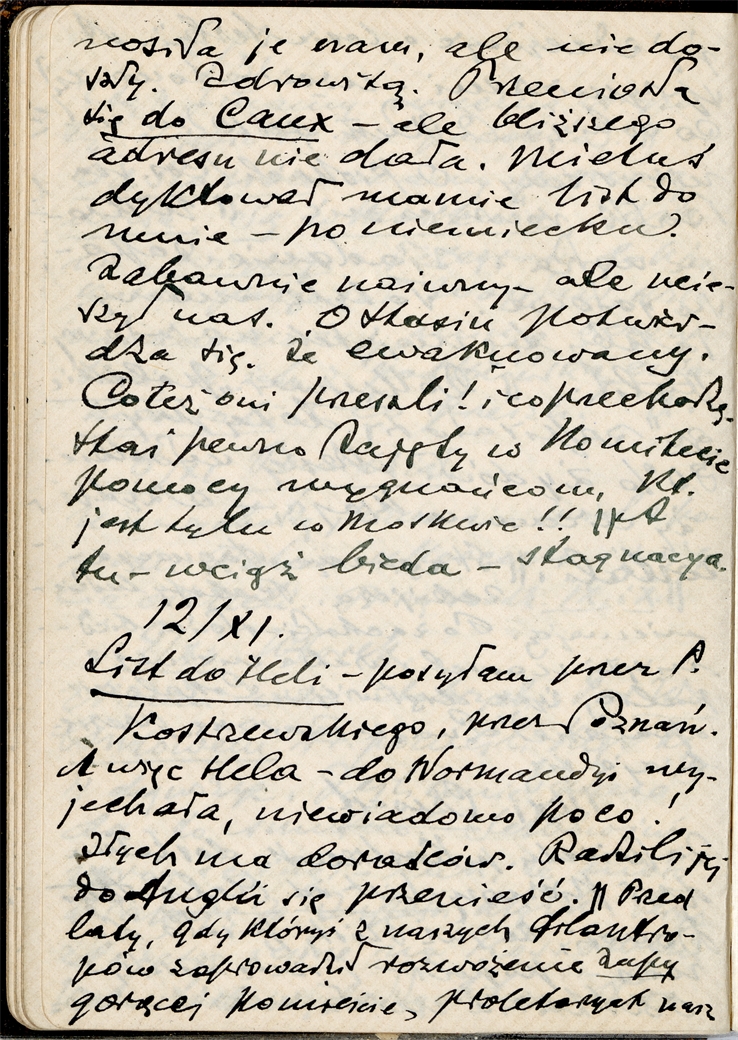 nosiła je nam, ale nie do-
szły. Zdrowi są. Przeniosła
się do Caux – ale bliższego
adresu nie dała. Mietuś
dyktował mamie list do
mnie – po niemiecku.
Zabawnie naiwny – ale ucie-
szył nas. O Stasiu potwier-
dza się, że ewakuowany.
Coteż oni przeszli! i co przechodzą.
Staś pewno zajęty w Komitecie
pomocy wygnańcom, kt.
jest tylu w Moskwie!! || A
tu – wciąż bieda – stagnacya.
12/XI.
List do Heli – posyłam przez P.
Kostrzewskiego, przez Poznań.
A więc Hela – do Normandyi wy-
jechała, niewiadomo poco!
Złych ma doradców. Radzili jej
do Anglii się przenieść. || Przed
laty, gdy któryś z naszych filantro-
pów zaprowadził rozwożenie zupy
gorącej po mieście, proletaryat nasz